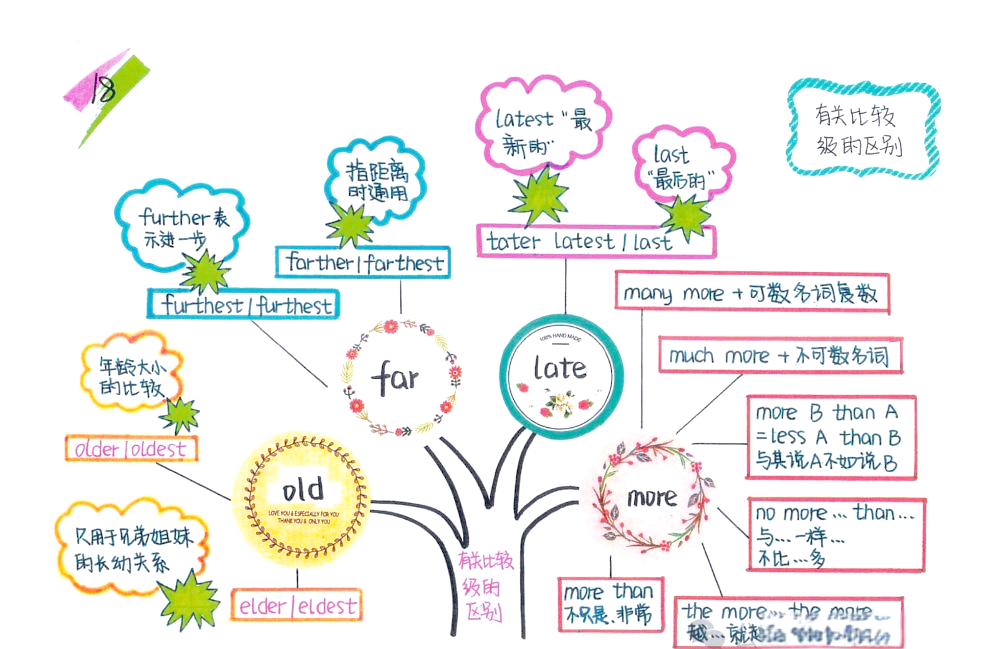 18
有关比较
级的区别
latest“最
新的”
last
“最后的”
tater latest/last
指距离
时通用
farther/farthest
further表
示进一步
furthest/furthest
年龄大小
的比较
older/oldest
只用于兄弟姐妹
的长幼关系
elder/eldest
far
100% HAND MADE
late
old
LOVE YOU & ESPECIALLY FOR YOU
THANK YOU & ONLY YOU
more
many more + 可数名词复数
much more + 不可数名词
more B than A
=less A than B
与其说A不如说B
no more … than…
与…一样…
不比…多
more than
不只是、非常
the more… the more…
越…就越
有关比较
级的
区别